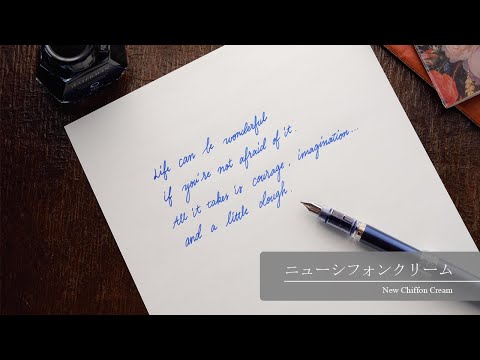 Life can be wonderful
if you're not afraid of it.
All it takes is courage, imagination...
and a little dough.
ニューシフォンクリーム
New Chiffon Cream